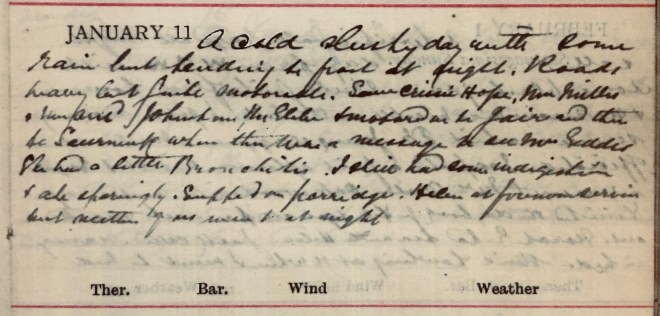 JANUARY 11 A cold slushy day with some
rain but tending to frost at night. Roads
heavy but quite motorable. Saw Crissie Hope, Mrs
& motored on to Fair and then
to when there was a message to see Mrs
She had a little Bronchitis. I still had some indigestion
& ate sparingly. Supped on porridge. Helen at forenoon service
but neither of us went at night
Ther. Bar. Wind Weather